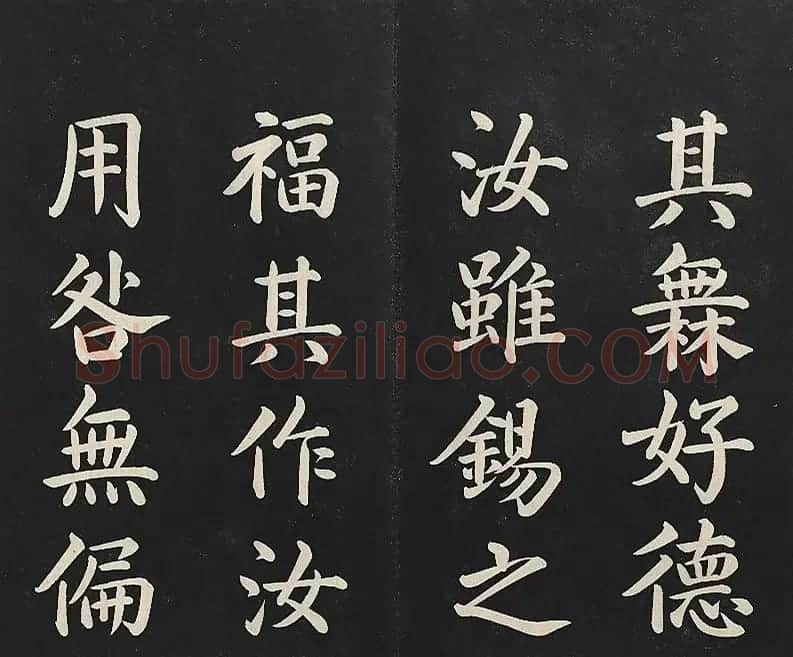 其橆好德
汝雖錫之
福其作汝
用咎無偏
Shufaziliao.COM